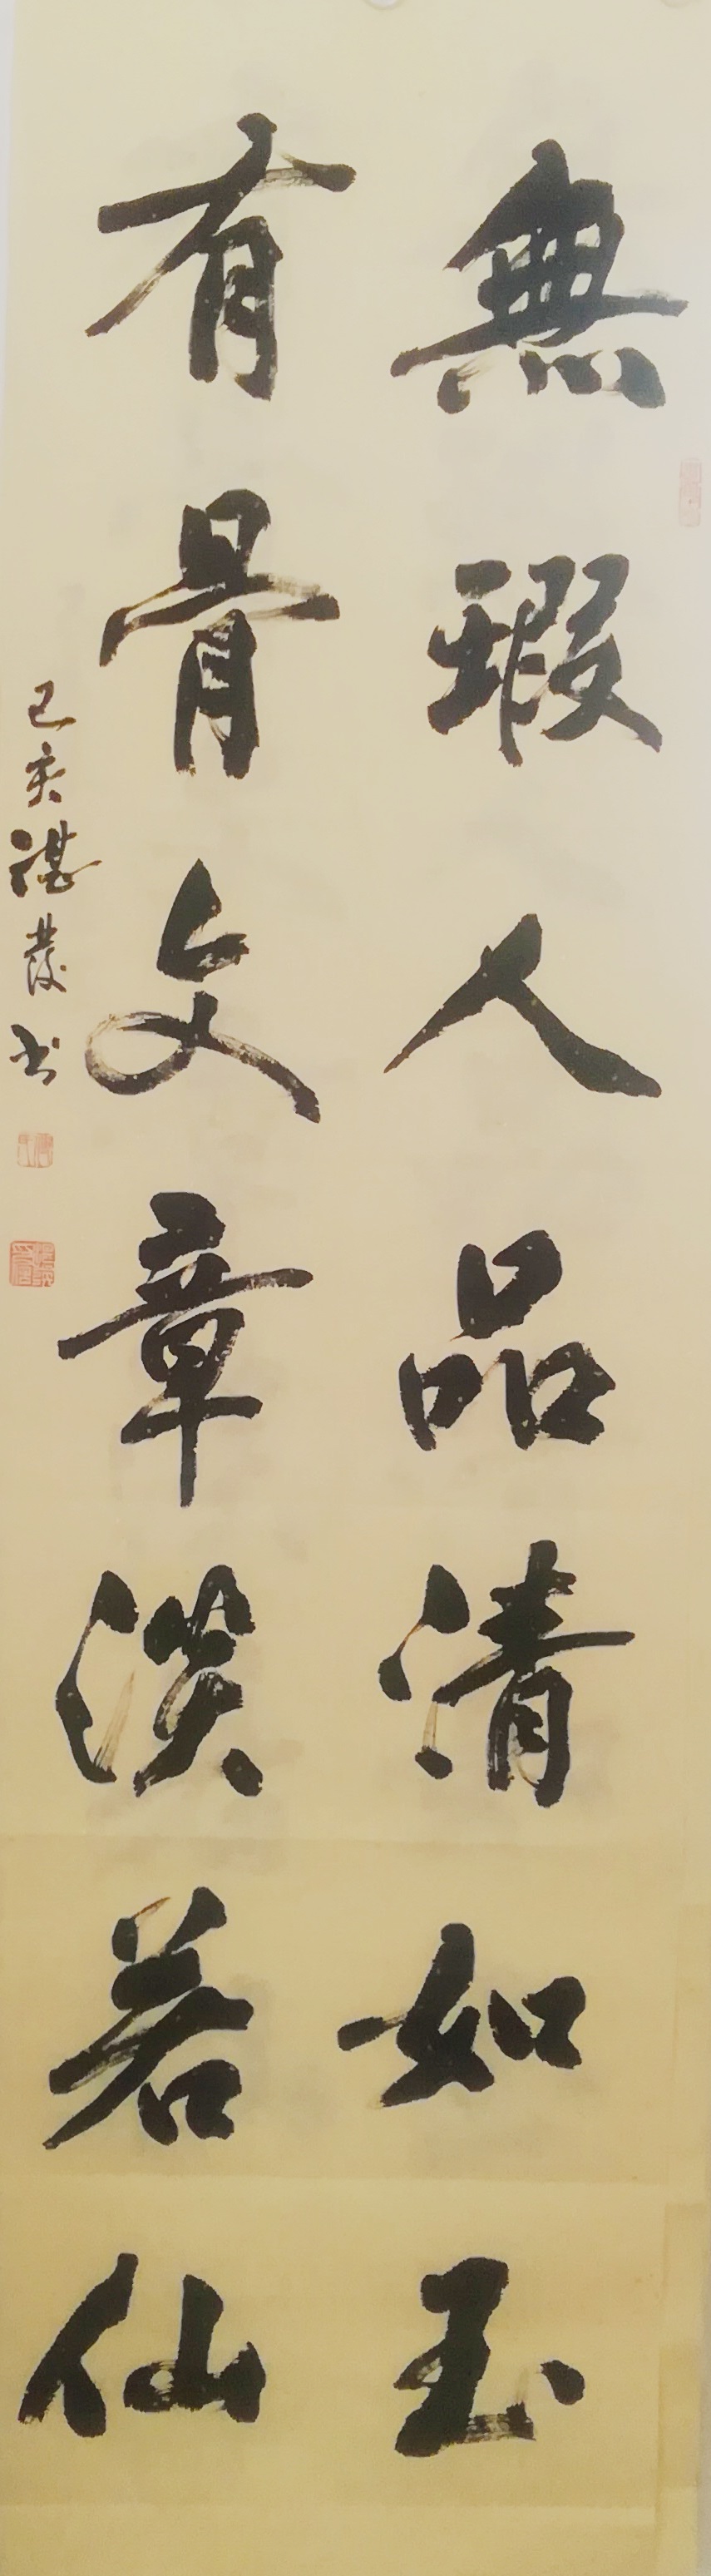 無瑕人品清如玉
有骨文章淡若仙
己亥 湛發书